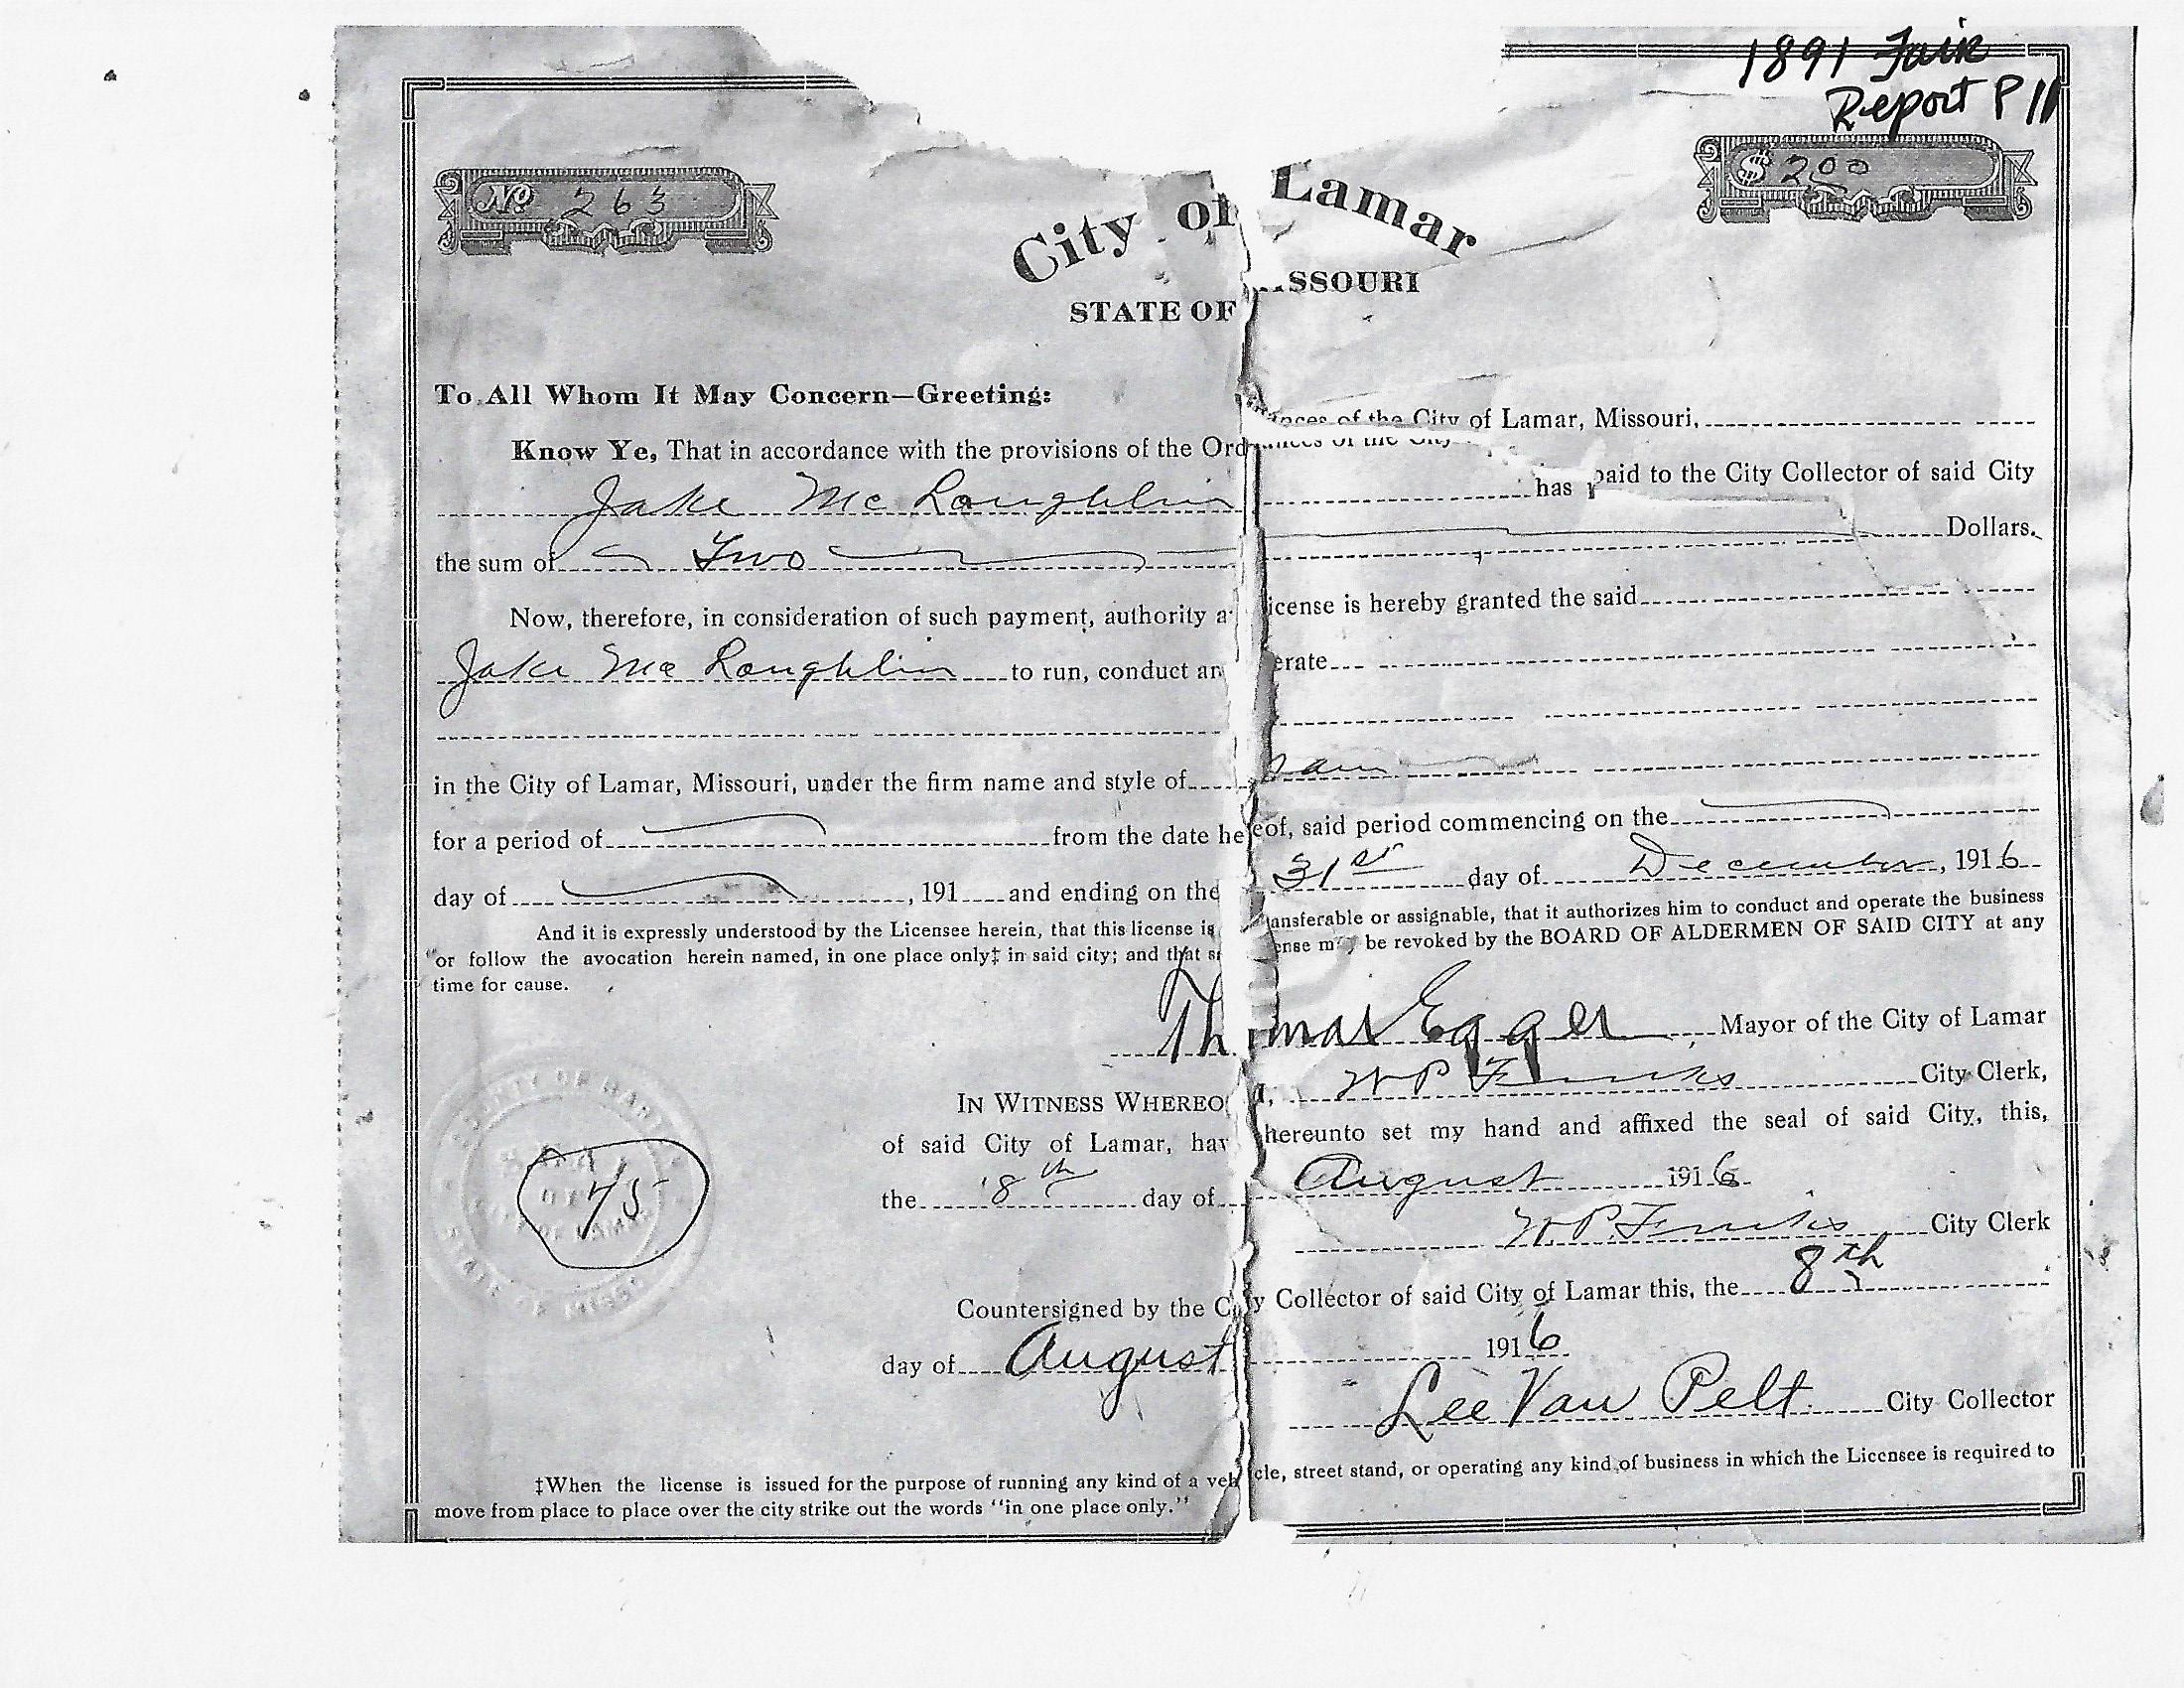 1891 Fair
Report P 11
No 263
$ 200
City of Lamar
STATE OF SSOURI
To All Whom It May Concern—Greeting:
Know Ye, That in accordance with the provisions of the Ord nces of the City of Lamar, Missouri,
Jake McLoughlin has paid to the City Collector of said City
the sum of Two Dollars.
Now, therefore, in consideration of such payment, authority a icense is hereby granted the said
Jake McLoughlin to run, conduct an erate
in the City of Lamar, Missouri, under the firm name and style of
for a period of from the date hereof, said period commencing on the
day of , 191 and ending on the 31st day of December, 1916
And it is expressly understood by the Licensee herein, that this license is ansferable or assignable, that it authorizes him to conduct and operate the business
or follow the avocation herein named, in one place only‡ in said city; and that s ense may be revoked by the BOARD OF ALDERMEN OF SAID CITY at any
time for cause.
Thomas Egger Mayor of the City of Lamar
IN WITNESS WHEREO I, W P City Clerk,
of said City of Lamar, hav hereunto set my hand and affixed the seal of said City, this,
the 8th day of August 1916
W. P. City Clerk
75
Countersigned by the City Collector of said City of Lamar this, the 8th
day of August 1916
Lee Van Pelt City Collector
‡When the license is issued for the purpose of running any kind of a vehicle, street stand, or operating any kind of business in which the Licensee is required to
move from place to place over the city strike out the words "in one place only."